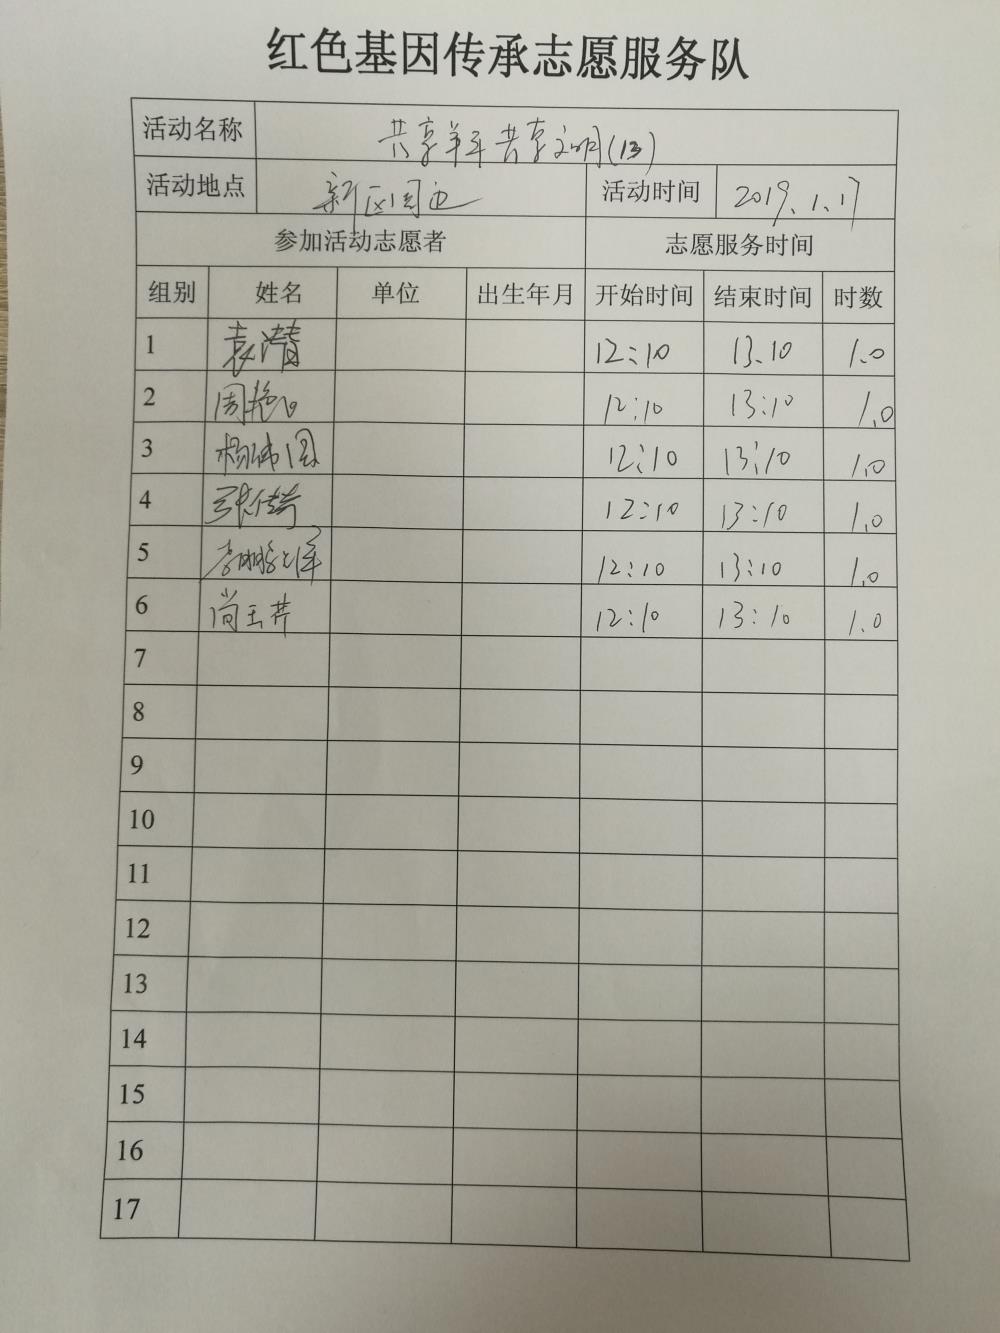 红色基因传承志愿服务队
活动名称 共享单车共享文明(13)
活动地点 新区周边 活动时间 2019.1.17
参加活动志愿者 志愿服务时间
组别 姓名 单位 出生年月 开始时间 结束时间 时数
1 袁清 12:10 13.10 1.0
2 周艳 12:10 13:10 1.0
3 杨伟国 12:10 13:10 1.0
4 张倚 12:10 13:10 1.0
5 李 12:10 13:10 1.0
6 尚玉芹 12:10 13:10 1.0
7
8
9
10
11
12
13
14
15
16
17